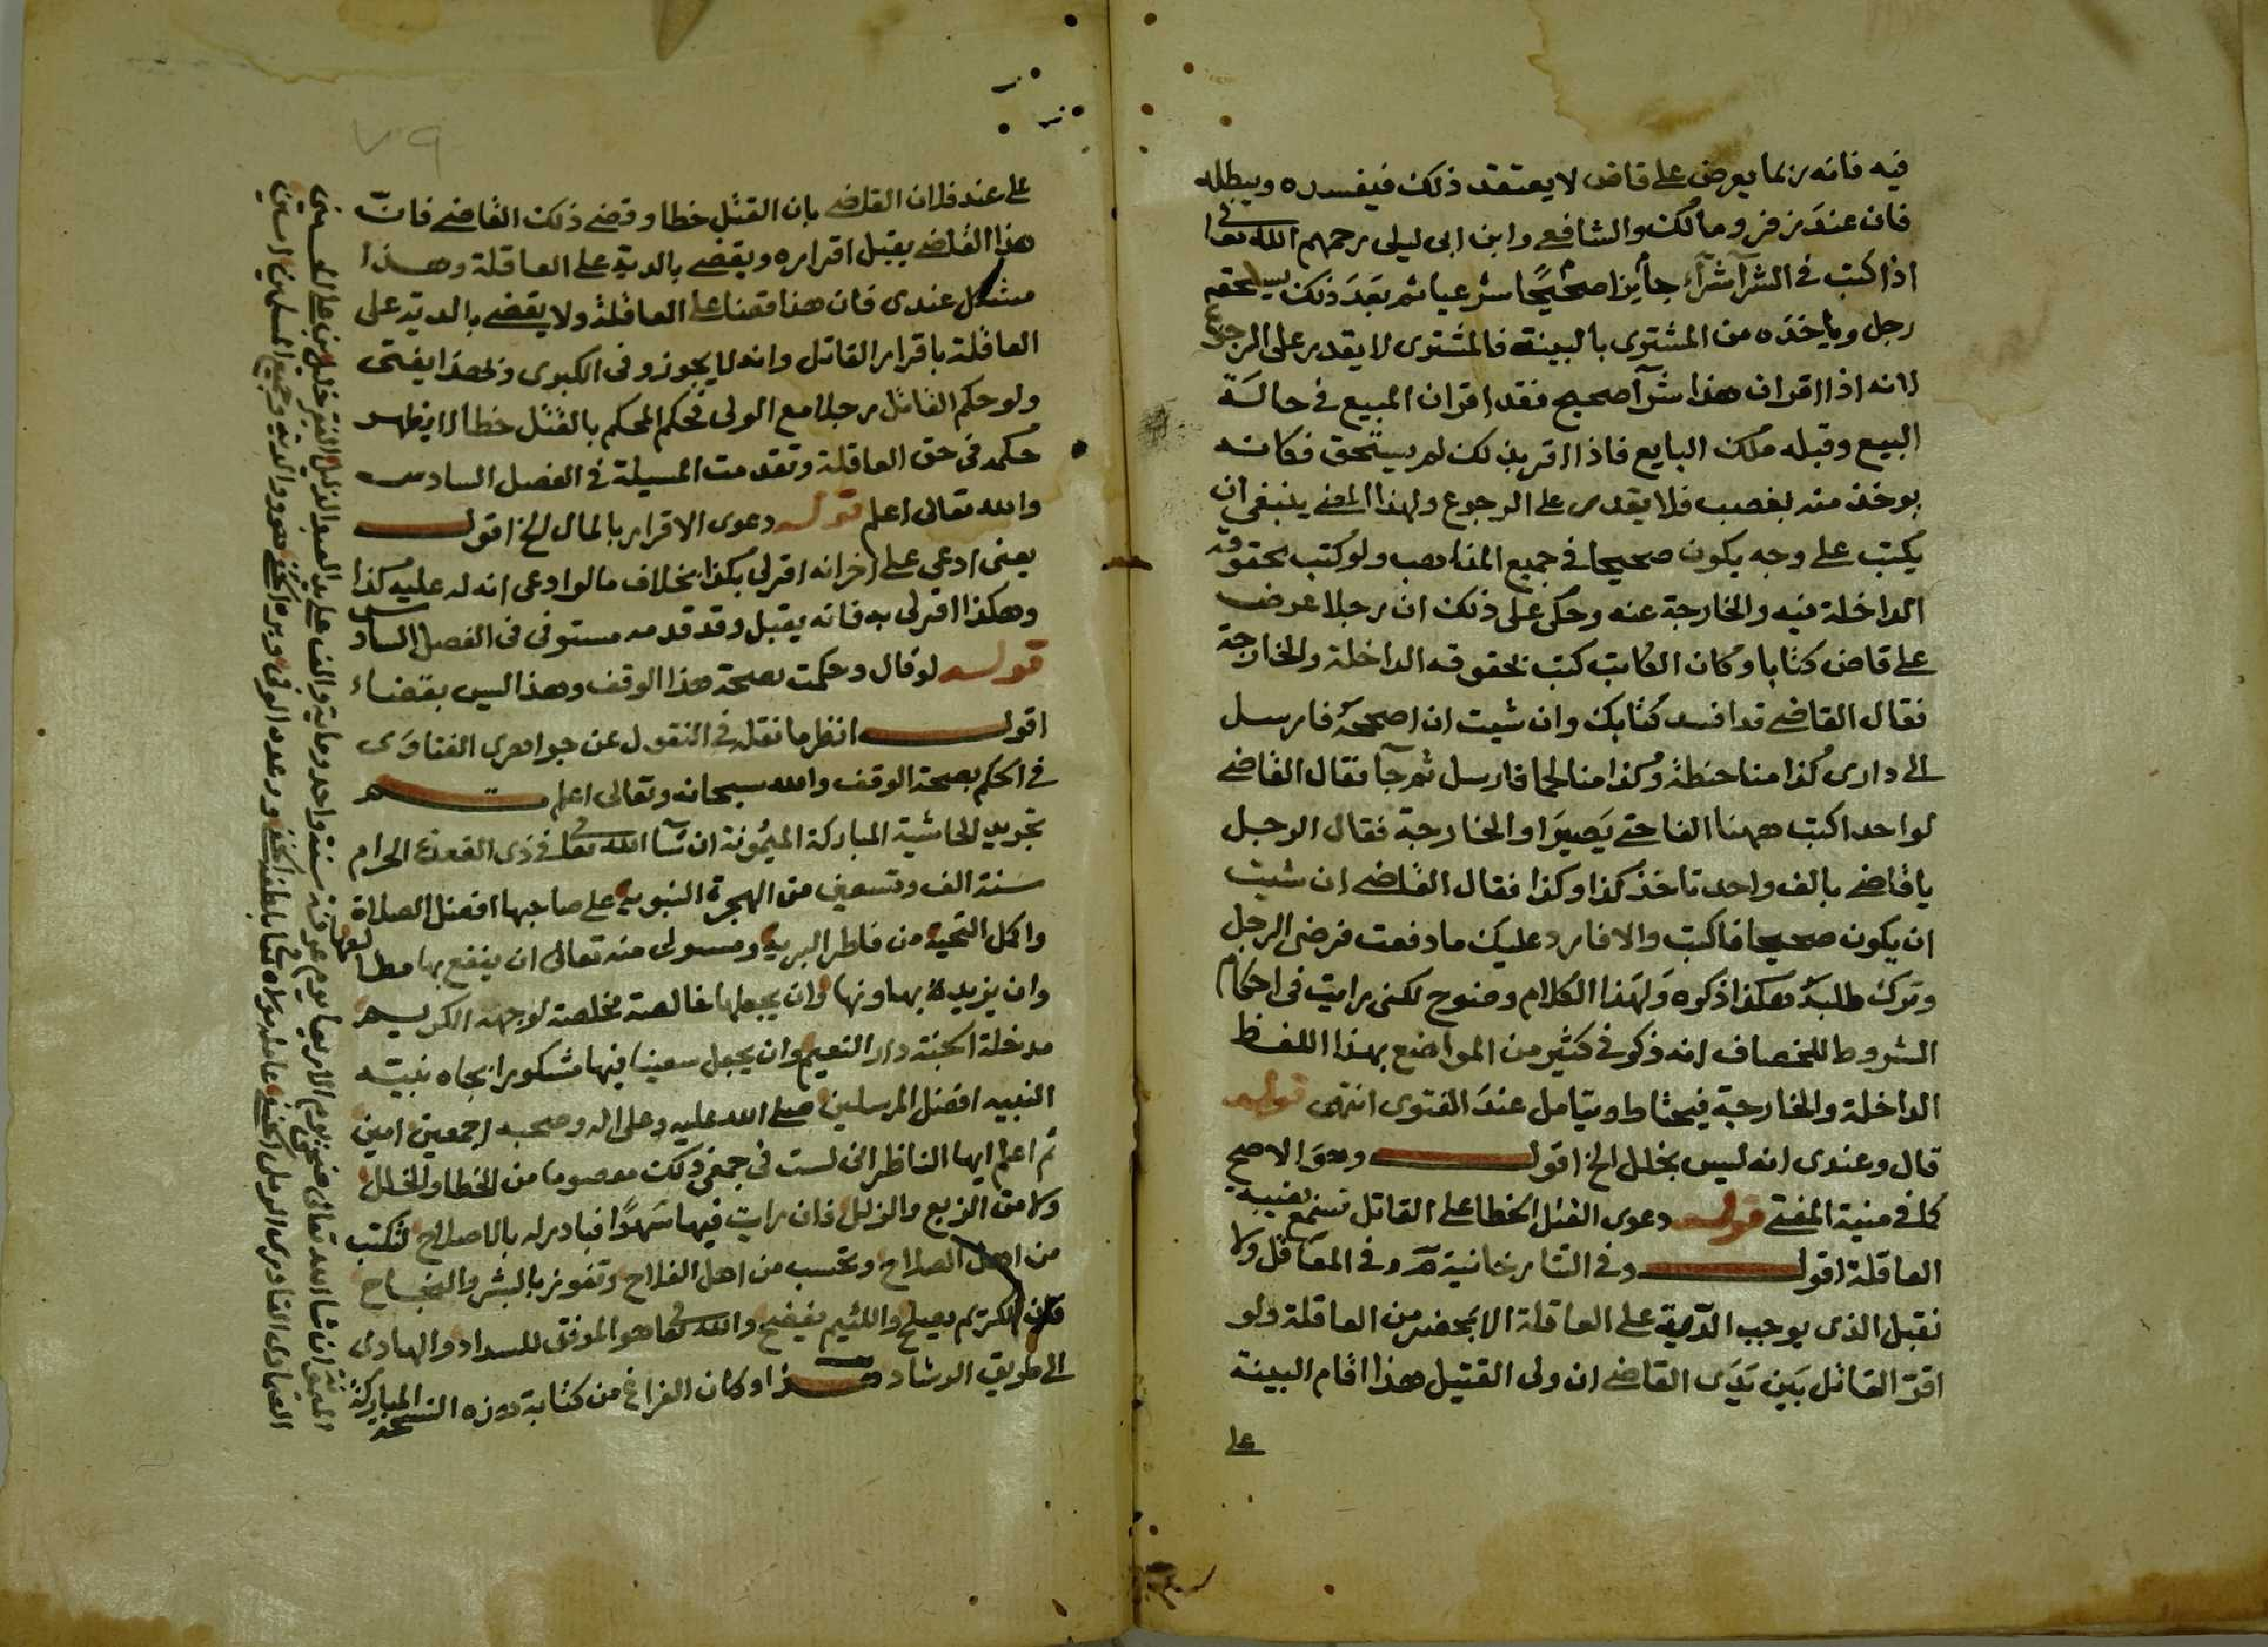 فيه فانه ربما يعرض على قاض لا يعتقد ذلك فيفسده ويبطله
فان عند زفر ومالك والشافعي وابن ابى ليلى رحمهم الله تعا
اذا كتب في الشرآ شرآء جائزا صحيحًا شرعيا ثم بعدَ ذلك يستحقه
رجل وياخذه من المشترى بالبينة فالمشترى لا يقدر على الرجوع
لانه اذا اقر ان هذا شرآ صحيح فقد اقر ان المبيع في حالة
البيع وقبله ملك البايع فاذا اقر بذلك لم يستحق فكانه
يوخذ منه بغصب فلا يقدر على الرجوع ولهذا المعنى ينبغي ان
يكتب على وجه يكون صحيحا في جميع المذاهب ولو كتب بحقوقه
الداخلة فيه والخارجة عنه وحكى على ذلك ان رجلا عرض
على قاض كتابا وكان الكاتب كتب بحقوقه الداخلة والخارجة
فقال القاضى قد افسد كتابك وان شيت ان اصححه فارسل
الى دارى كذا منا حنطة وكذا منا لحما فارسل ثم جآ فقال القاضى
لواحد اكتب ههنا الفا حتى يَصيرَ او الخارجة فقال الرجل
يا قاضى بالف واحد تاخذ كذا وكذا فقال القاضى ان شيت
ان يكون صحيحا فاكتب والا فارد عليك ما دفعت فرضى الرجل
وترك طلبه هكذا ذكره وَلهَذا الكلام وضوح لكنى رايت فى احكام
الشروط للخصاف انه ذكر في كثير من المواضع بهذا اللفظ
الداخلة والخارجة فيحتاط ويتامل عندَ الفتوى انتهى قوله
قال وعندى انه ليس بخلل الخ اقول وهوَ الاصح
كما في منية المفتى قوله دعوى القتل الخطا على القاتل تسمع بغيبة
العاقلة اقول وفي التتارخانية وفي المعاقل ولا
نقبل الذى يوجب الدّية على العاقلة الا بمحضر من العاقلة ولو
اقرّ القاتل بَين يَدَى القاضى ان ولى القتيل هذا اقام البينة
على
على عند فلان القاضى بان القتل خطا وقضى ذلك القاضى فانّ
هذا القاضى يقبل اقراره ويقضى بالدية على العاقلة وهذا
مشكل عندى فان هذا قضا على العاقلة ولا يقضى بالدية على
العاقلة باقرار القاتل وانه لا يجوز وفى الكبرى وبهذا يفتى
ولو حكم القاتل رجلا مع الولى فحكم المحكم بالقتل خطا لا يظهر
حكمه فى حق العاقلة وتقدمت المسيلة في الفصل السادس
والله تعالى اعلم قوله دعوى الاقرار بالمال الخ اقول
يعنى ادعى على اخر انه اقر لى بكذا بخلاف ما لو ادعى انه له عليه كذا
وهكذا اقر لى به فانه يقبل وقد قدمه مستوفى فى الفصل السادس
قوله لو قال وحكمت بصحة هذا الوقف وهذا ليس بقضاء
اقول انظر ما نقله في النقول عن جواهرى الفتاوَى
في الحكم بصحة الوقف والله سبحانه وتعالى اعلم تم
تجريد الحاشية المباركة الميمونة ان شآ الله تعا في ذى القعدة الحرام
سنة الف وتسعين من الهجرة النبوية على صاحبها افضل الصلاة
واكمل التحية من فاطر البرية ومسولى منه تعالى ان ينفع بها مطالعها
وان يزيده بها ونها وان يجعلها خالصة مخلصة لوجهه الكريم
مدخلة الجنة دار النعيم وان يجعل سعينا فيها مشكورا بجاه نبيه
النبيه افضل المرسلين صلى الله عليه وعلى اله وصحبه اجمعين امين
ثم اعلم ايها الناظر انى لست فى جمعى ذلك معصوما من الخطا والخلل
ولا من الزيع والزلل فان رايت فيها سَهوًا فبادر له بالاصلاح لتكتب
من اهل الصلاح وتحسب من اهل الفلاح وتفوز بالبشر والنجاح
فان الكريم يصلح واللئيم يفضح والله تعا هو الموفق للسداد والهادى
الى طريق الرشاد هذا وكان الفراغ من كتابة هذه النسخة المباركة
ان شا الله تعالى ضحى يوم الاربعا يوم عرفة سنة واحد وماية والف على يد العبد الذليل الفقير خليل بن على
العمادى القادرى الرملى الحنفى عامله مولاه تعا بلطفه الخفى وغفر له ولوالديه وجميع المسلمين امين